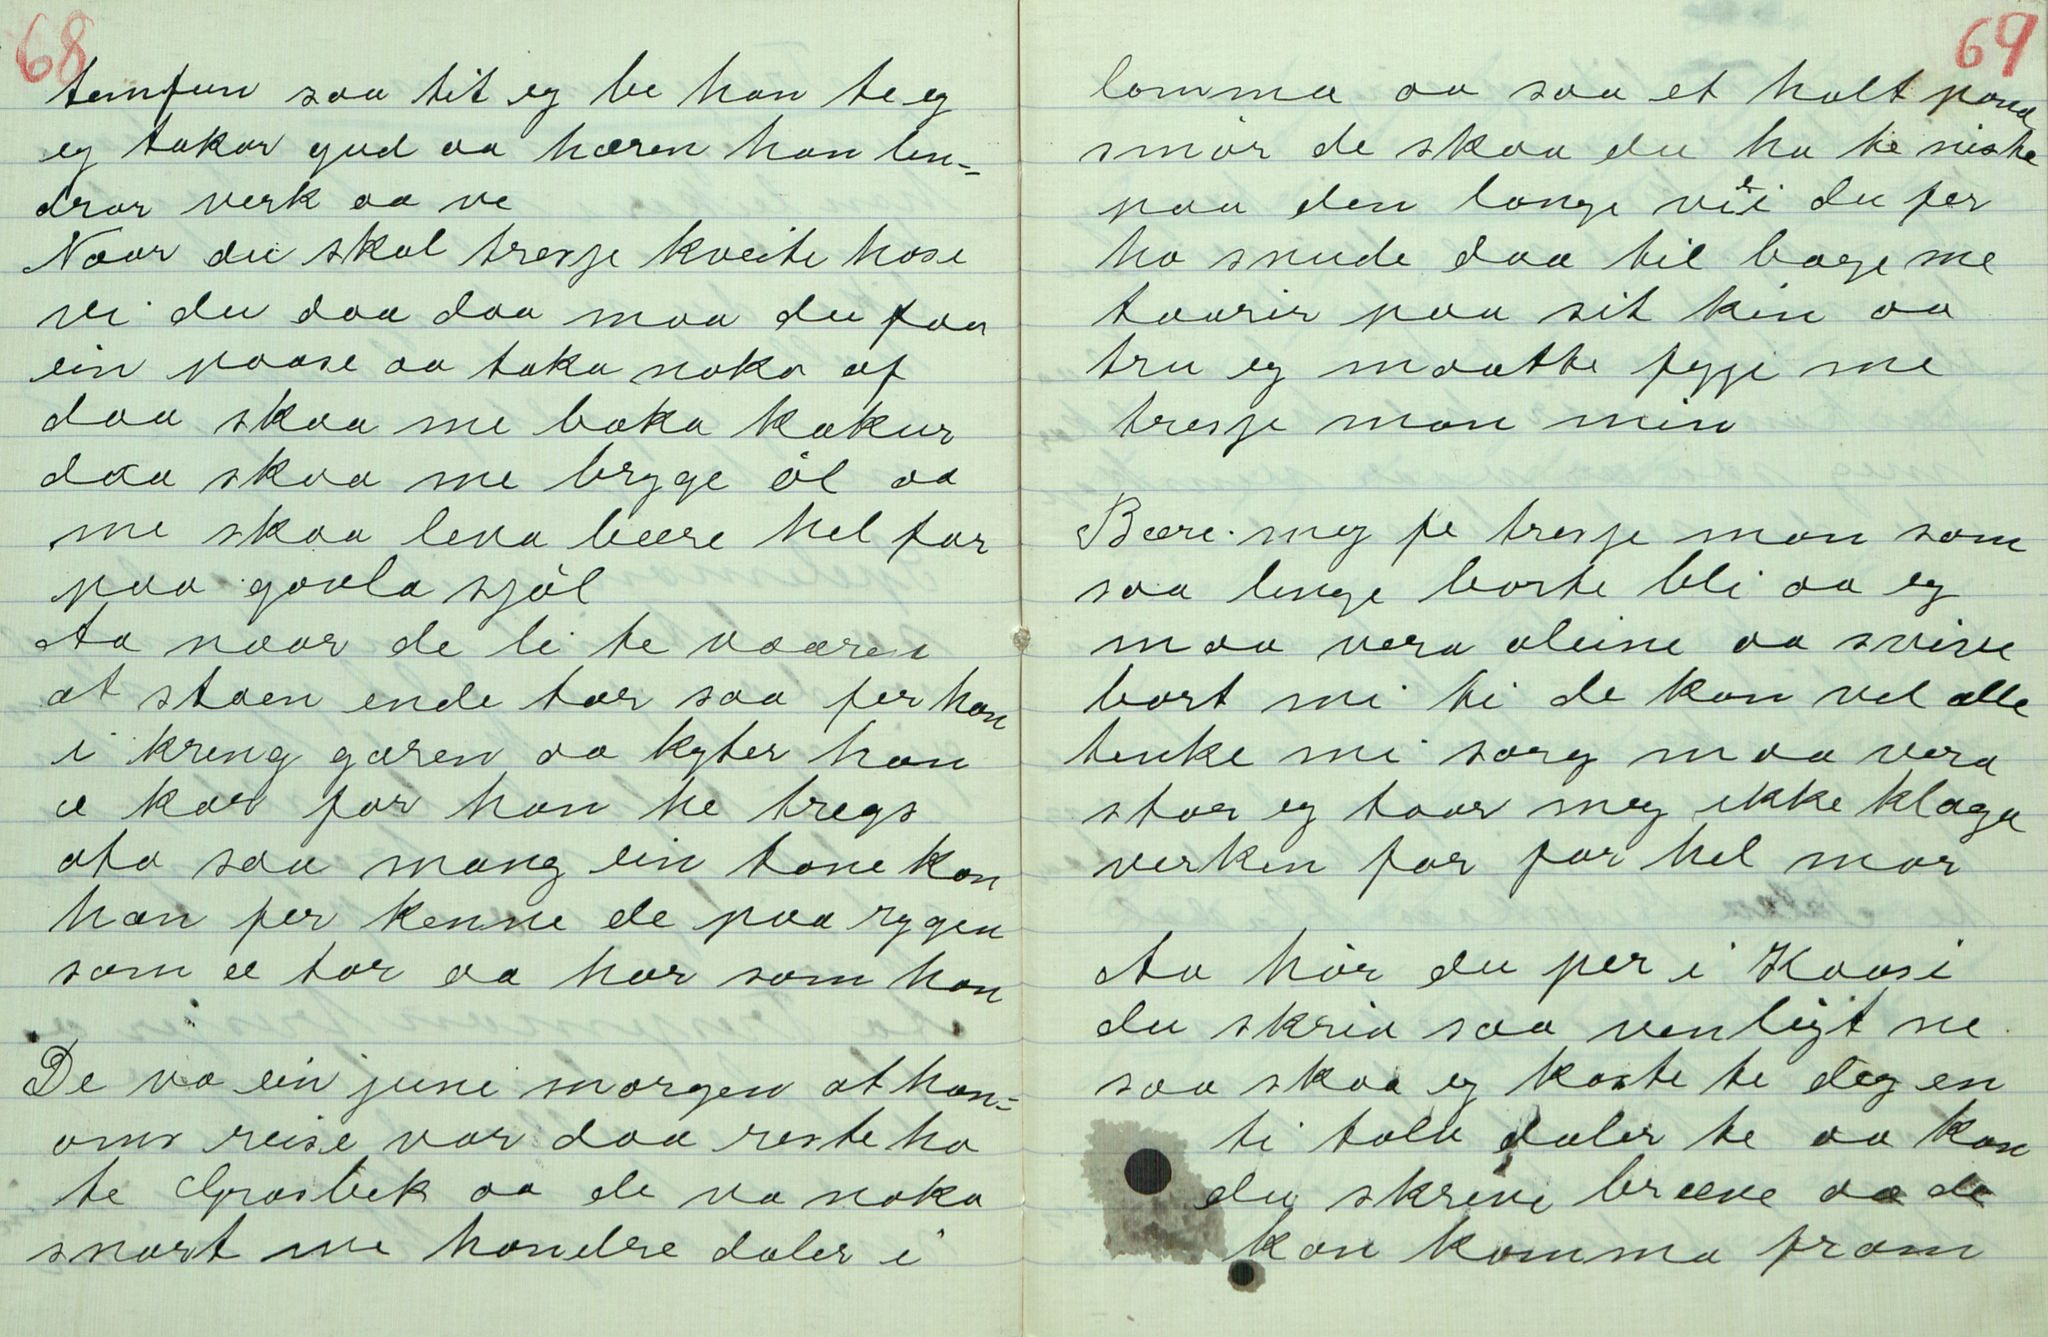 68
temfun saa tit eg be han te eg
eg takar gud aa hæren han len=
drar verk aa ve
Naar du skal tresje kveite hose
vi du daa daa maa du faa
ein paase aa taka noka af
daa skaa me baka kakur
daa skaa me bryge öl aa
me skaa leva bære hel far
paa gavla sjöl
Aa naar de li te vaaren
at staen ende tar saa fer han
i kring garen aa kyter han
æ kar far han he tregs
ata saa mang ein tane kan
han fer kenne de paa rygen
som æ tar aa har som han
De va ein juni morgen at han=
oms reise var daa reste ha
te Grasbek aa de va noka
snart me hondre daler i
69
lomma aa saa et halt pona
smör de skaa du ha te niste
paa den lange vei du fer
ha snude daa til bage me
taarir paa sit kin aa
tru eg maatte fygje me
tresje man min
Bære meg fe tresje man som
saa lenge borte bli aa eg
maa vera aleine aa svive
bort mi ti de kan vel alle
tenke mi sorg maa vera
stor eg taar meg ikke klaga
verken for far hel mor
Aa hör du per i Haasi
du skria saa venligt ne
saa skaa eg kaste te deg en
ti tolv daler te aa kan
du skrive brææve aa de
kan komma fram